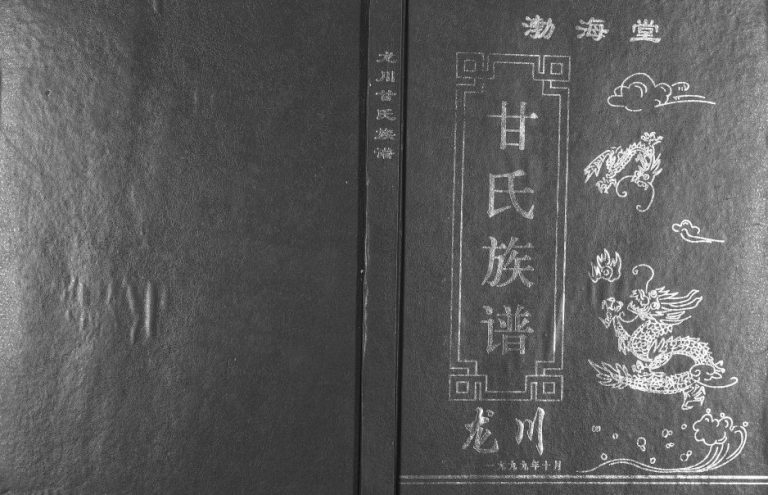 渤海堂
甘氏族谱
龙川
一九九九年十月
龙川甘氏族谱